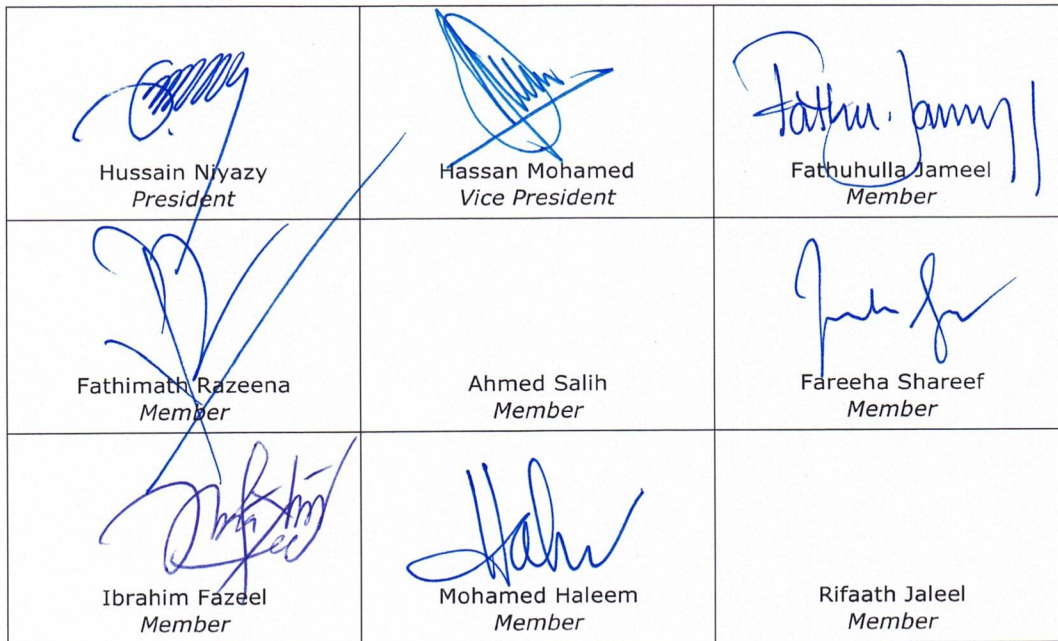 Hussain Niyazy
President
Hassan Mohamed
Vice President
Fathuhulla Jameel
Member
Fathimath Razeena
Member
Ahmed Salih
Member
Fareeha Shareef
Member
Ibrahim Fazeel
Member
Mohamed Haleem
Member
Rifaath Jaleel
Member